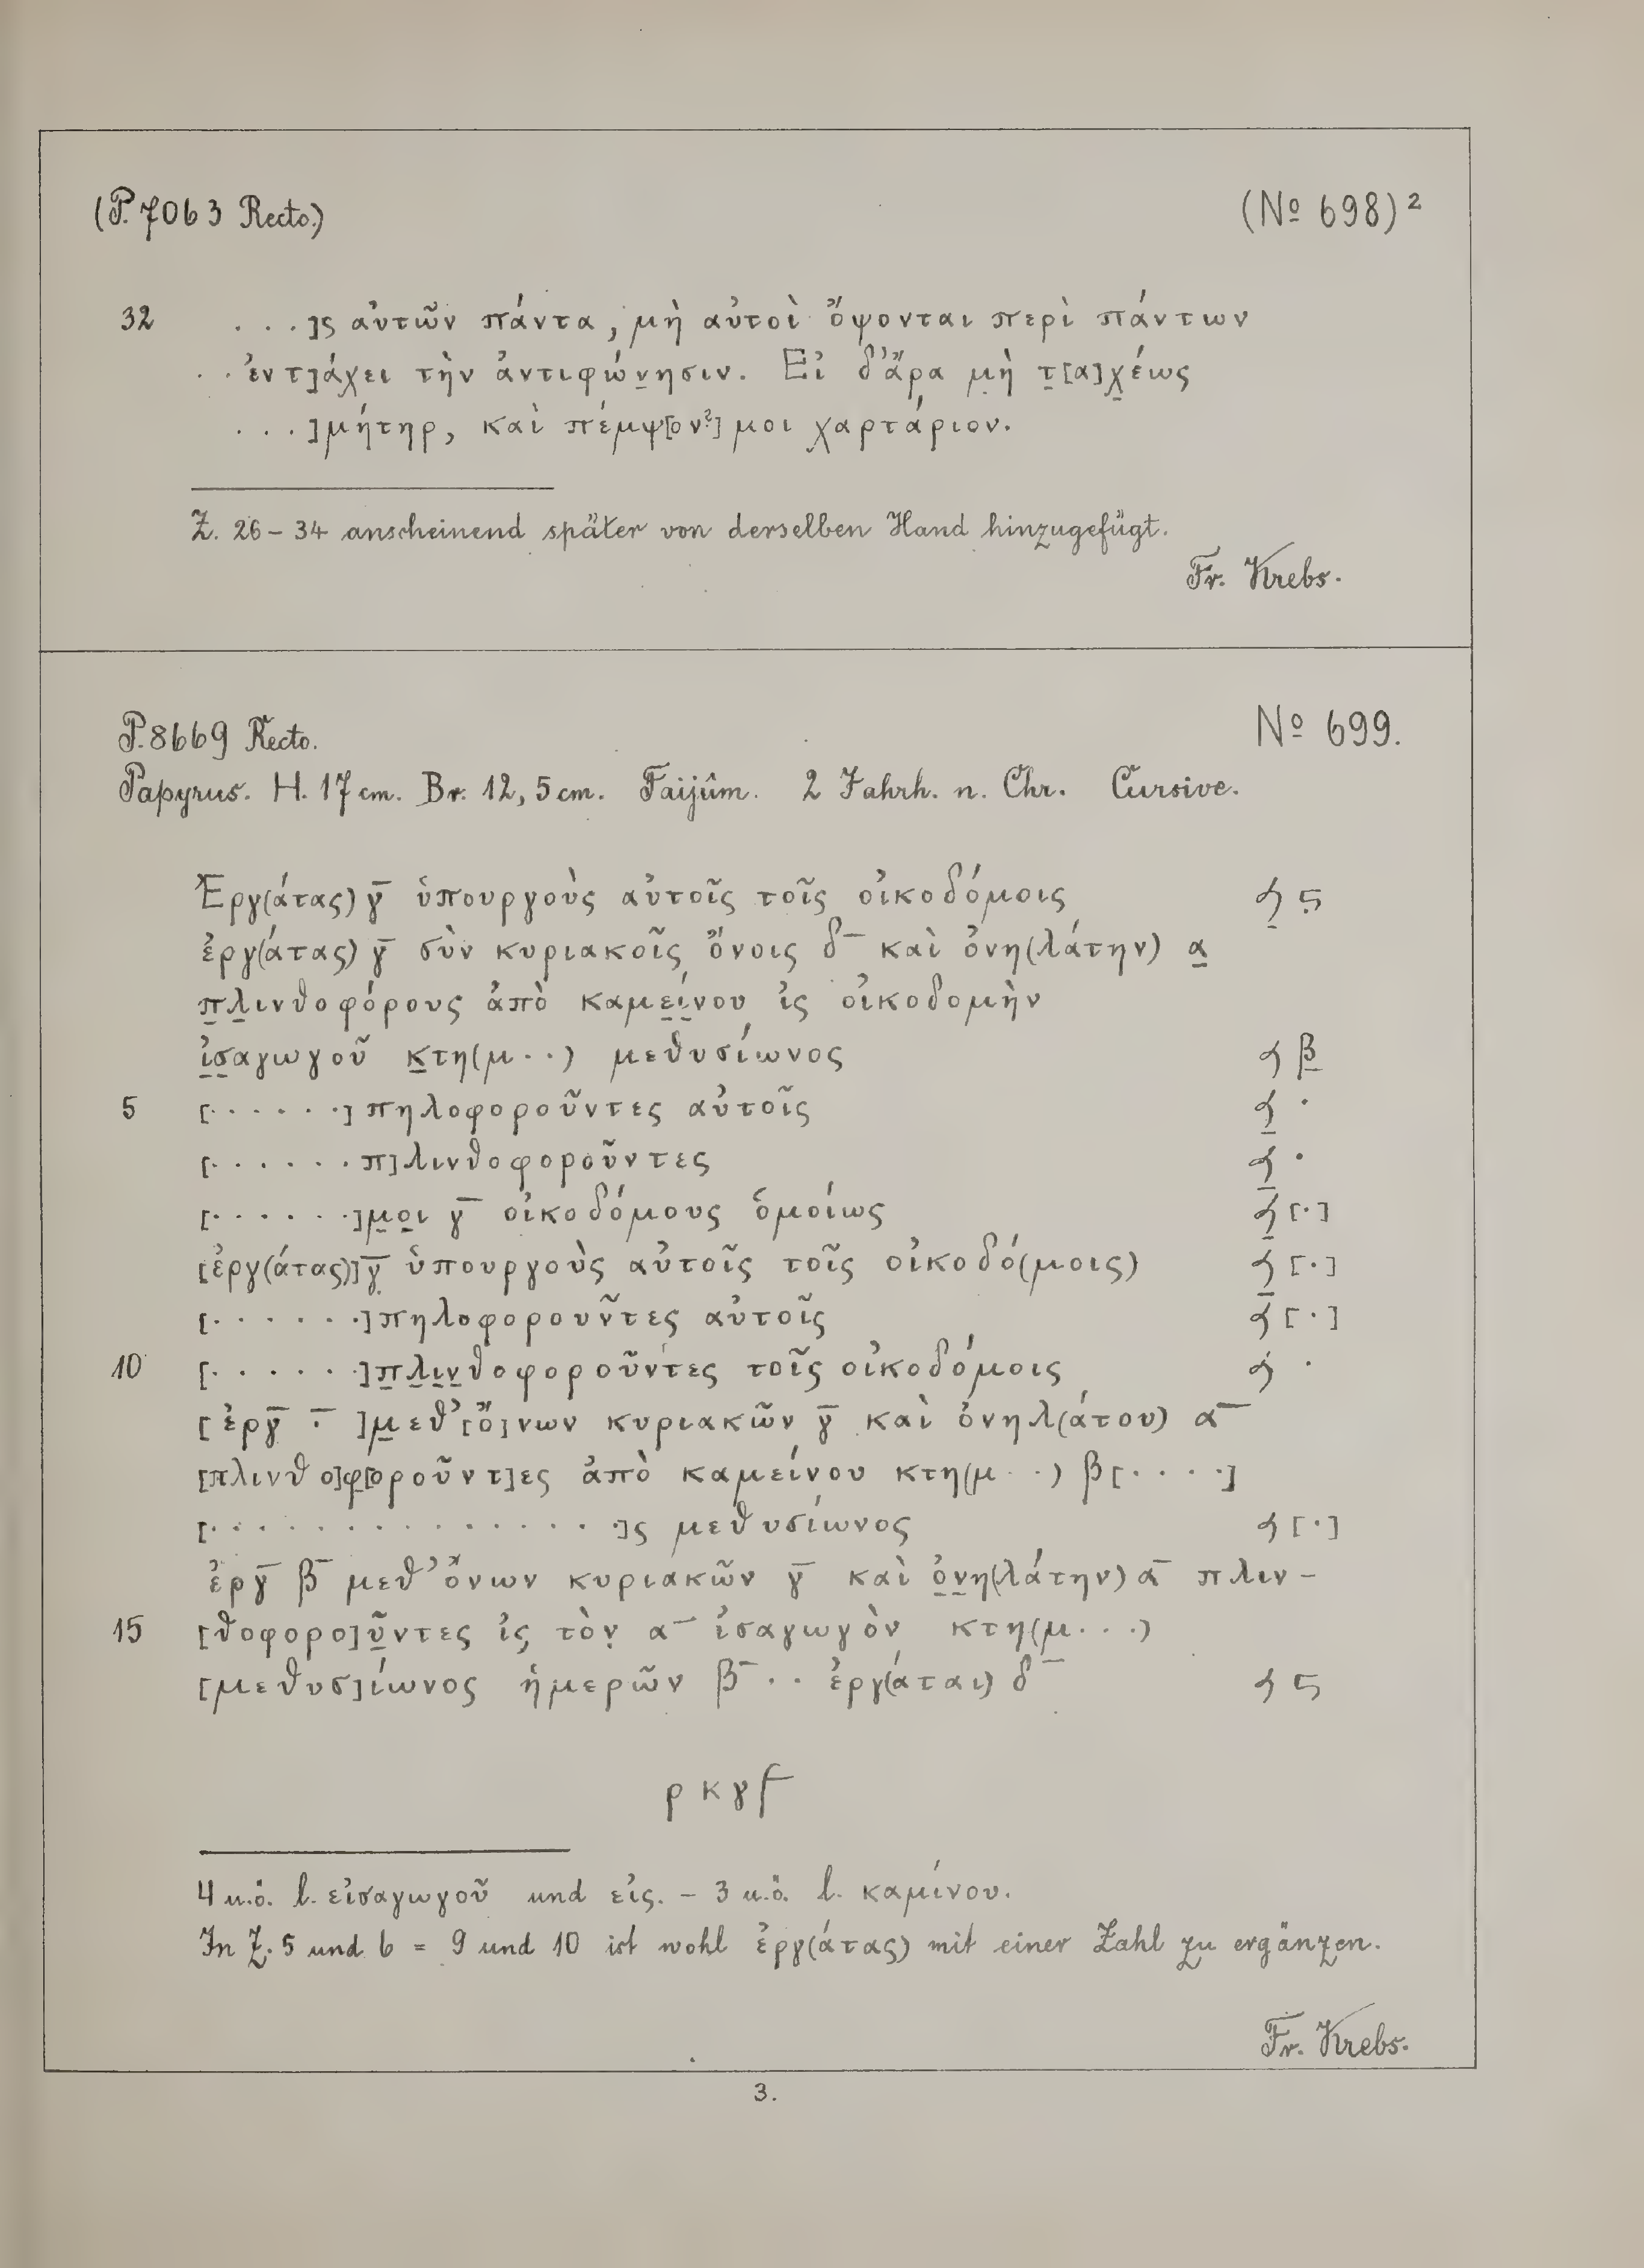 (P. 7063 Recto.) (Nº 698)²
32 . . .]ς αὐτῶν πάντα, μὴ αὐτοὶ ὄψονται περὶ πάντων
. . ἐν τ]άχει τὴν ἀντιφώνησιν. Εἰ δ' ἄρα μὴ τ[α]χέως
. . .]μήτηρ, καὶ πέμψ[ον?] μοι χαρτάριον.
Z. 26 – 34 anscheinend später von derselben Hand hinzugefügt.
Fr. Krebs.
P. 8669 Recto. Nº 699.
Papyrus. H. 17 cm. Br. 12,5 cm. Faijûm. 2 Jahrh. n. Chr. Cursive.
Ἐργ(άτας) γ̅ ὑπουργοὺς αὐτοῖς τοῖς οἰκοδόμοις ϟ ϛ
ἐργ(άτας) γ̅ σὺν κυριακοῖς ὄνοις δ̅ καὶ ὀνη(λάτην) α
πλινθοφόρους ἀπὸ καμείνου ἰς οἰκοδομὴν
ἰσαγωγοῦ κτη(μ..) μεθυσίωνος ϟ β
5 [.......] πηλοφοροῦντες αὐτοῖς ϟ .
[...... π]λινθοφοροῦντες ϟ .
[.......]μοι γ̅ οἰκοδόμους ὁμοίως ϟ [.]
[ἐργ(άτας)] γ̅ ὑπουργοὺς αὐτοῖς τοῖς οἰκοδό(μοις) ϟ [.]
[.......]πηλοφοροῦντες αὐτοῖς ϟ [.]
10 [.......]πλινθοφοροῦντες τοῖς οἰκοδόμοις ϟ .
[ἐργ̅ .̅ ]μεθ' [ὄ]νων κυριακῶν γ̅ καὶ ὀνηλ(άτου) α̅
[πλινθο]φ[οροῦντ]ες ἀπὸ καμείνου κτη(μ..) β[.....]
[................]ς μεθυσίωνος ϟ [.]
ἐργ̅ β̅ μεθ' ὄνων κυριακῶν γ̅ καὶ ὀνη(λάτην) α̅ πλιν-
15 [θοφορο]ῦντες ἰς τὸν α̅ ἰσαγωγὸν κτη(μ...)
[μεθυσ]ίωνος ἡμερῶν β̅ .. ἐργ(άται) δ̅ ϟ ϛ
ρκγ𐅵
4 u.ö. l. εἰσαγωγοῦ und εἰς. – 3 u.ö. l. καμίνου.
In Z. 5 und 6 = 9 und 10 ist wohl ἐργ(άτας) mit einer Zahl zu ergänzen.
Fr. Krebs.
3.